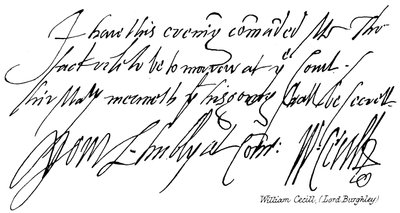 I have this evening comaded Mr Tho
to be to morow at ye Court
hir Maty meaneth yt his going shall be secrett
yor L. hubly at com: W. Cecill
William Cecill, (Lord Burghley)